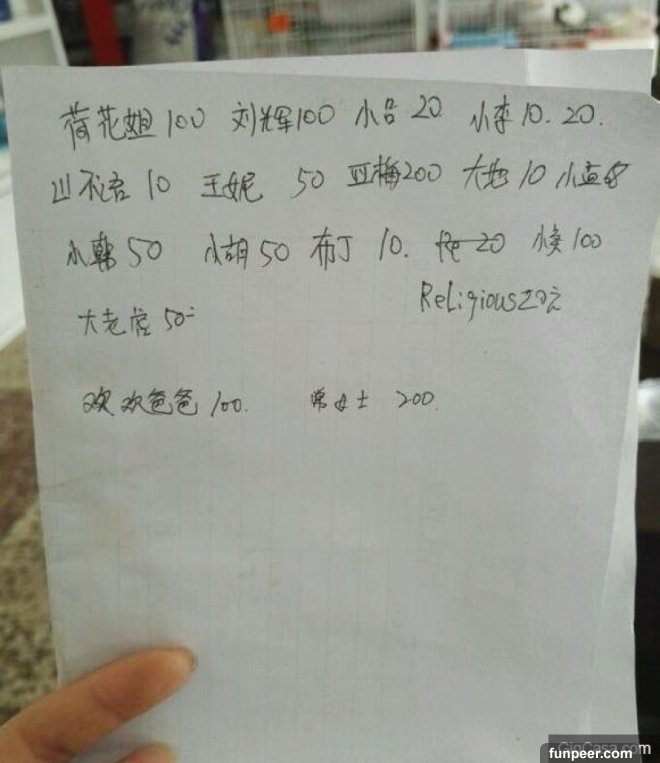 荷花姐 100 刘辉 100 小吕 20 小李 10. 20.
山不语 10 王妮 50 亚梅 200 大 10 小
小韩 50 小胡 50 布丁 10. 20 小 100
Religious 20元
大老 50
欢欢爸爸 100. 常女士 200
GigCasa.com
funpeer.com